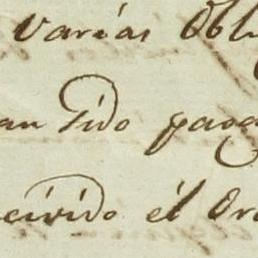 varias Obl
an sido paga
civido él Or